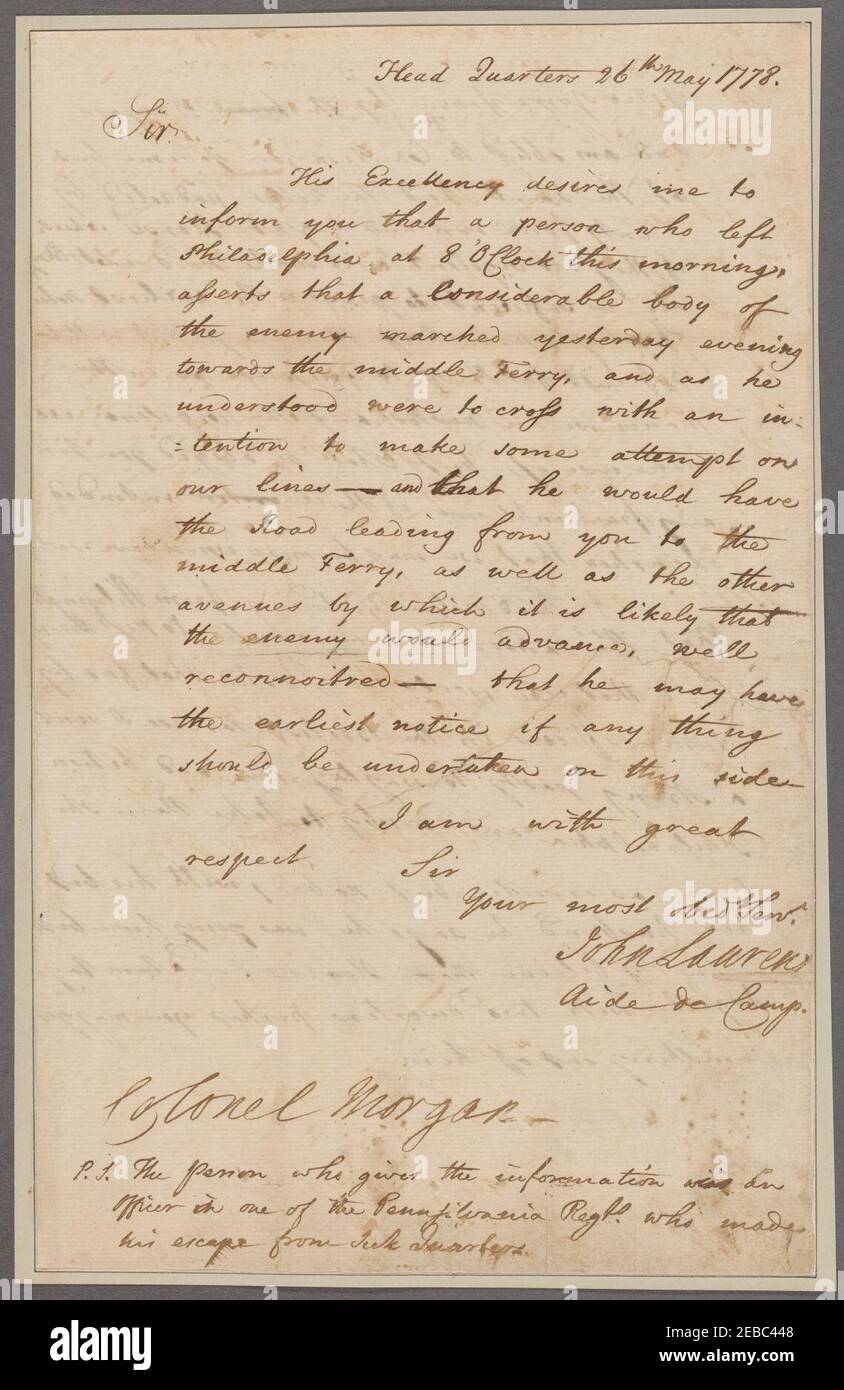 Head Quarters 26th May 1778.
Sir.
His Excellency desires me to
inform you that a person who left
Philadelphia at 8 'OClock this morning,
asserts that a Considerable body of
the enemy marched yesterday evening
towards the middle Ferry, and as he
understood were to cross with an in-
-tention to make some attempt on
our lines — and that he would have
the Road leading from you to the
middle Ferry, as well as the other
avenues by which it is likely that
the enemy would advance, well
reconnoitred — that he may have
the earliest notice if any thing
should be undertaken on this side
I am with great
respect Sir
Your most Obedt Servt.
John Laurens
Aide de Camp.
Colonel Morgan
P.S. The person who gives the information was an
Officer in one of the Pennsilvania Regts. who made
his escape from Sick Quarters.
alamy
Image ID: 2EBC448
www.alamy.com